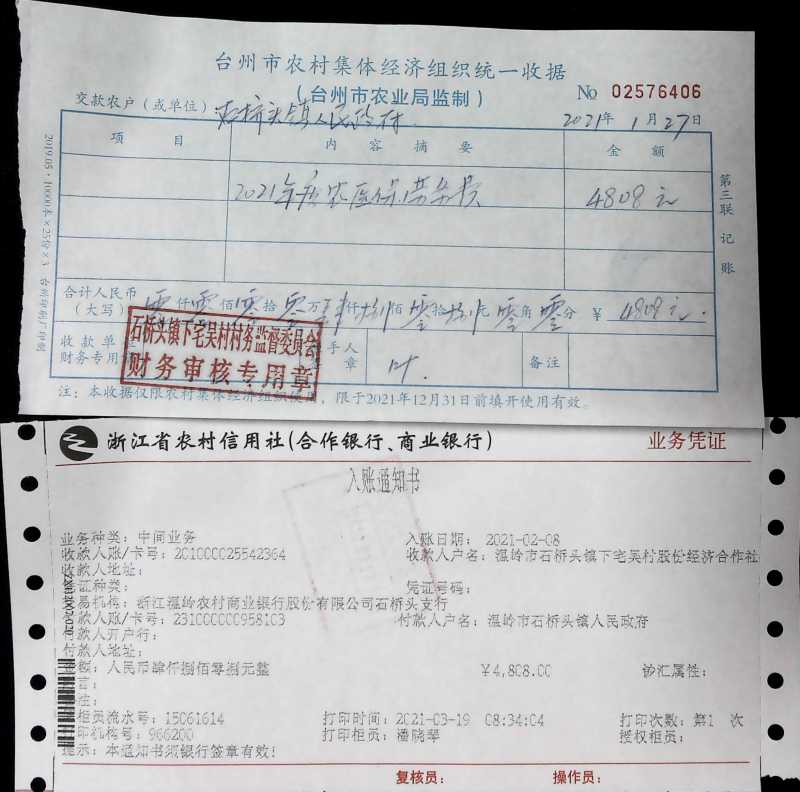 台州市农村集体经济组织统一收据
(台州市农业局监制)
No 02576406
交款农户(或单位) 石桥头镇人民政府
2021年1月27日
项 目 内 容 摘 要 金 额
2021年 农医保劳务费 4808元
合计人民币
(大写) 零仟零佰零拾零万肆仟捌佰零拾捌元零角零分 ¥ 4808元.
收款单
财务专用
手人
章
叶.
备注
石桥头镇下宅吴村村务监督委员会
财务审核专用章
注:本收据仅限农村集体经济组织使用,限于2021年12月31日前填开使用有效。
第三联 记账
2019.05·10000本×25份×3 台州印刷厂印制
浙江省农村信用社(合作银行、商业银行)
业务凭证
入账通知书
业务种类: 中间业务 入账日期: 2021-02-08
收款人账/卡号: 201000025542364 收款人户名: 温岭市石桥头镇下宅吴村股份经济合作社
收款人地址:
凭证种类: 凭证号码:
易机构: 浙江温岭农村商业银行股份有限公司石桥头支行
款人账/卡号: 231000000958103 付款人户名: 温岭市石桥头镇人民政府
付款人开户行:
付款人地址:
金额: 人民币肆仟捌佰零捌元整 ¥4,808.00 钞汇属性:
言:
注:
柜员流水号: 15061614 打印时间: 2021-03-19 08:34:04 打印次数: 第1 次
印机构号: 966200 打印柜员: 潘晓琴 授权柜员:
提示: 本通知书须银行签章有效!
复核员: 操作员: